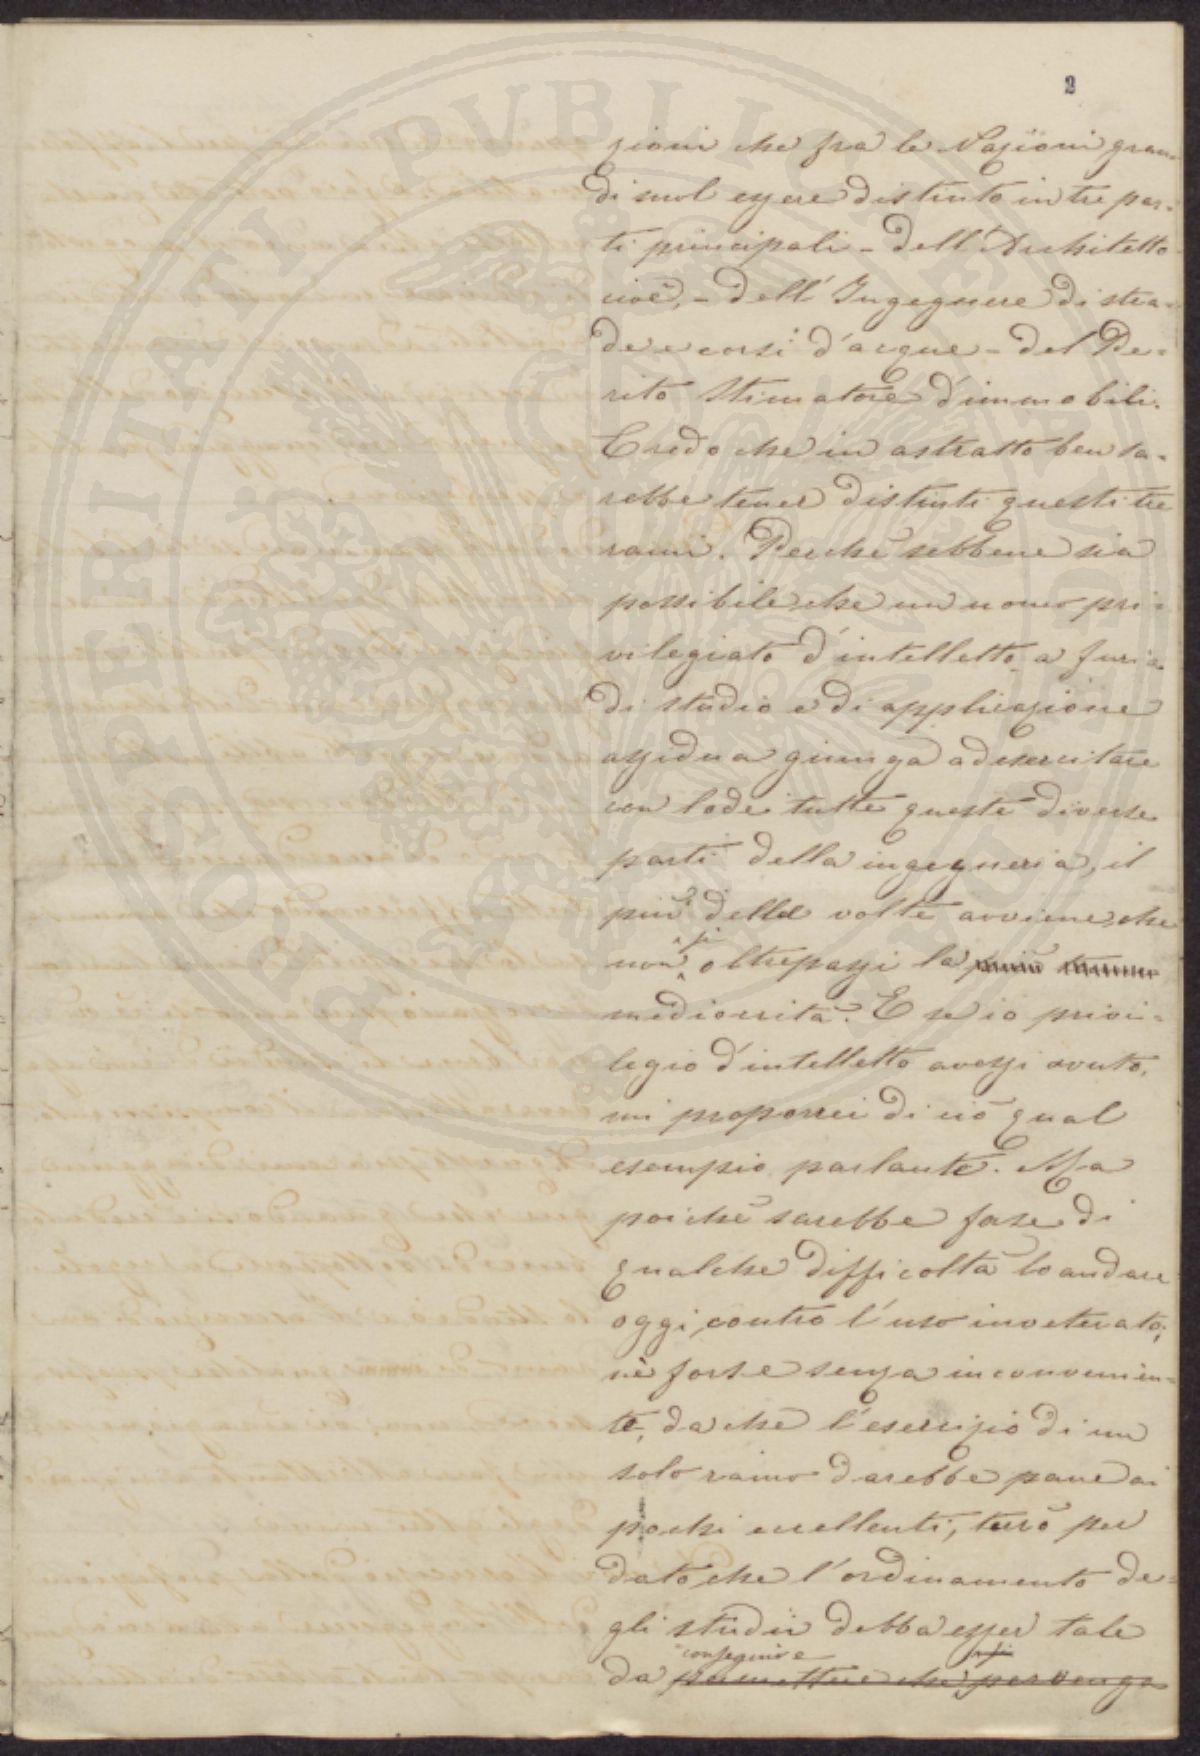 2
zioni che fra le Nazioni gran-
di suol essere distinto in tre par-
ti principali - dell'Architetto
cioè, - dell'Ingegnere di stra-
de e corsi d'acque - del Pe-
rito Stimatore d'immobili.
Credo che in astratto ben sa-
rebbe tener distinti questi tre
rami. Perchè sebbene sia
possibile che un uomo pri-
vilegiato d'intelletto a furia
di studio e di applicazione
assidua giunga ad esercitare
con lode tutte queste diverse
parti della ingegneria, il
più delle volte avviene che
si
non oltrepassi la più
mediocrità. E se io privi-
legio d'intelletto avessi avuto,
mi proporrei di ciò qual
esempio parlante. Ma
poichè sarebbe forse di
qualche difficoltà lo andare
oggi contro l'uso inveterato,
nè forse senza inconvenien-
te, da che l'esercizio di un
solo ramo darebbe pane ai
pochi eccellenti, terrò per
dato che l'ordinamento de-
gli studii debba esser tale
conseguire si
da permettere che pervenga
PROSPERITATI PUBLICAE